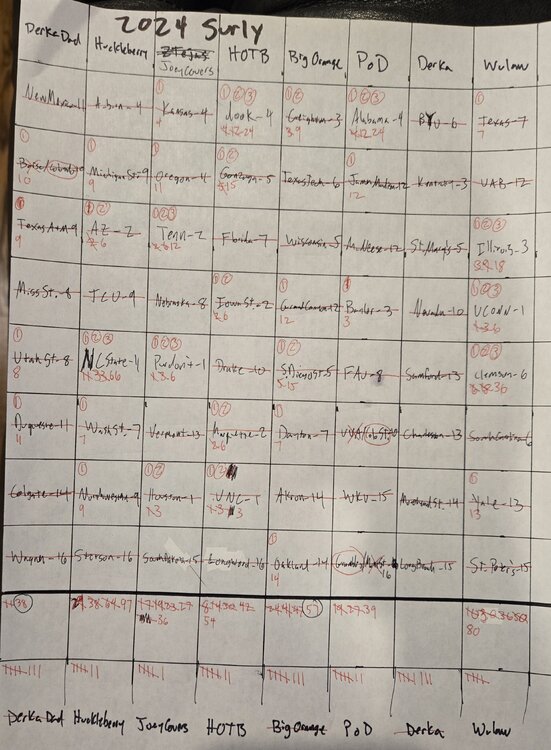 2024 Surly
Derka Dad Huckleberry JoeyCovers HOTB Big Orange PoD Derka Wulaw
New Mexico-11 Auburn-4 Kansas-4 dook-4 Creighton-3 Alabama-4 BYU-6 Texas-7
4 4.12.24 3.9 4.12.24 7
Michigan St.-9 Oregon-4 Gonzaga-5 Texas Tech-6 James Madison-12 Kentucky-3 UAB-12
10 9 11 5.15 12
Texas A+M-9 AZ-2 Tenn-2 Florida-7 Wisconsin-5 McNeese-12 St. Mary's-5 Illinois-3
9 2.6 2.6.12 3.9.18
Miss St.-8 TCU-9 Nebraska-8 Iowa St.-2 Grand Canyon-12 Baylor-3 Nevada-10 UCONN-1
2.6 12 3 1.3.6
Utah St-8 NC State-11 Purdont-1 Drake-10 S.Diego St.-5 FAU-8 Samford-13 Clemson-6
8 11.33.66 1.3.6 5.15 6.18.36
Duquesne-11 Wash St.-7 Vermont-13 Marquette-2 Dayton-7 Charleston-13 South Carolina-6
11 7 2.6 7
Colgate-14 Northwestern-9 Houston-1 UNC-1 Akron-14 WKU-15 Morehead St.-14 Yale-13
9 1.3 1.3 3 13
Wagner-16 Stetson-16 Longwood-16 Oakland-14 Long Beach-15 St. Peter's-15
14 16
38 38.64.97 57 19.27.39
36 54 80
Derka Dad Huckleberry JoeyCovers HOTB Big Orange PoD Derka Wulaw